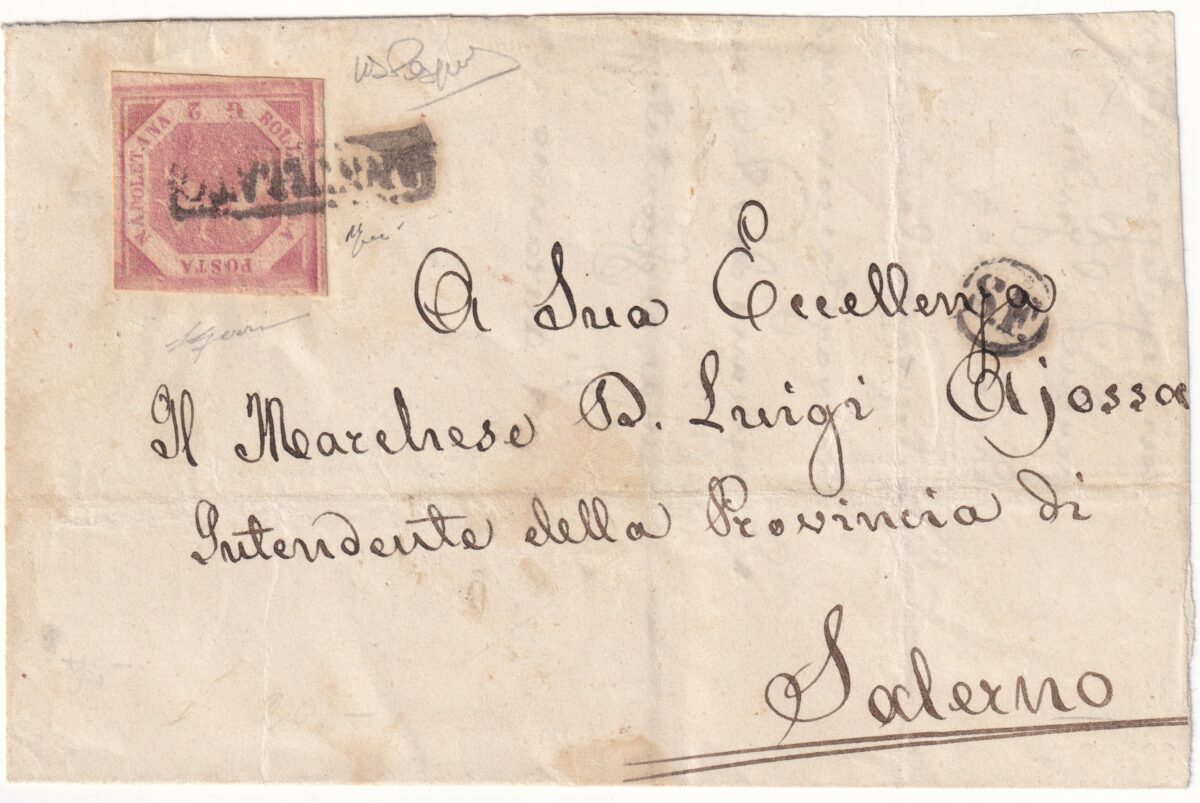 BOLLO DELLA POSTA NAPOLETANA G 2
ANNULLATO
A Sua Eccellenza
S.F.
Il Marchese D. Luigi Ajossa
Intendente della Provincia di
Salerno